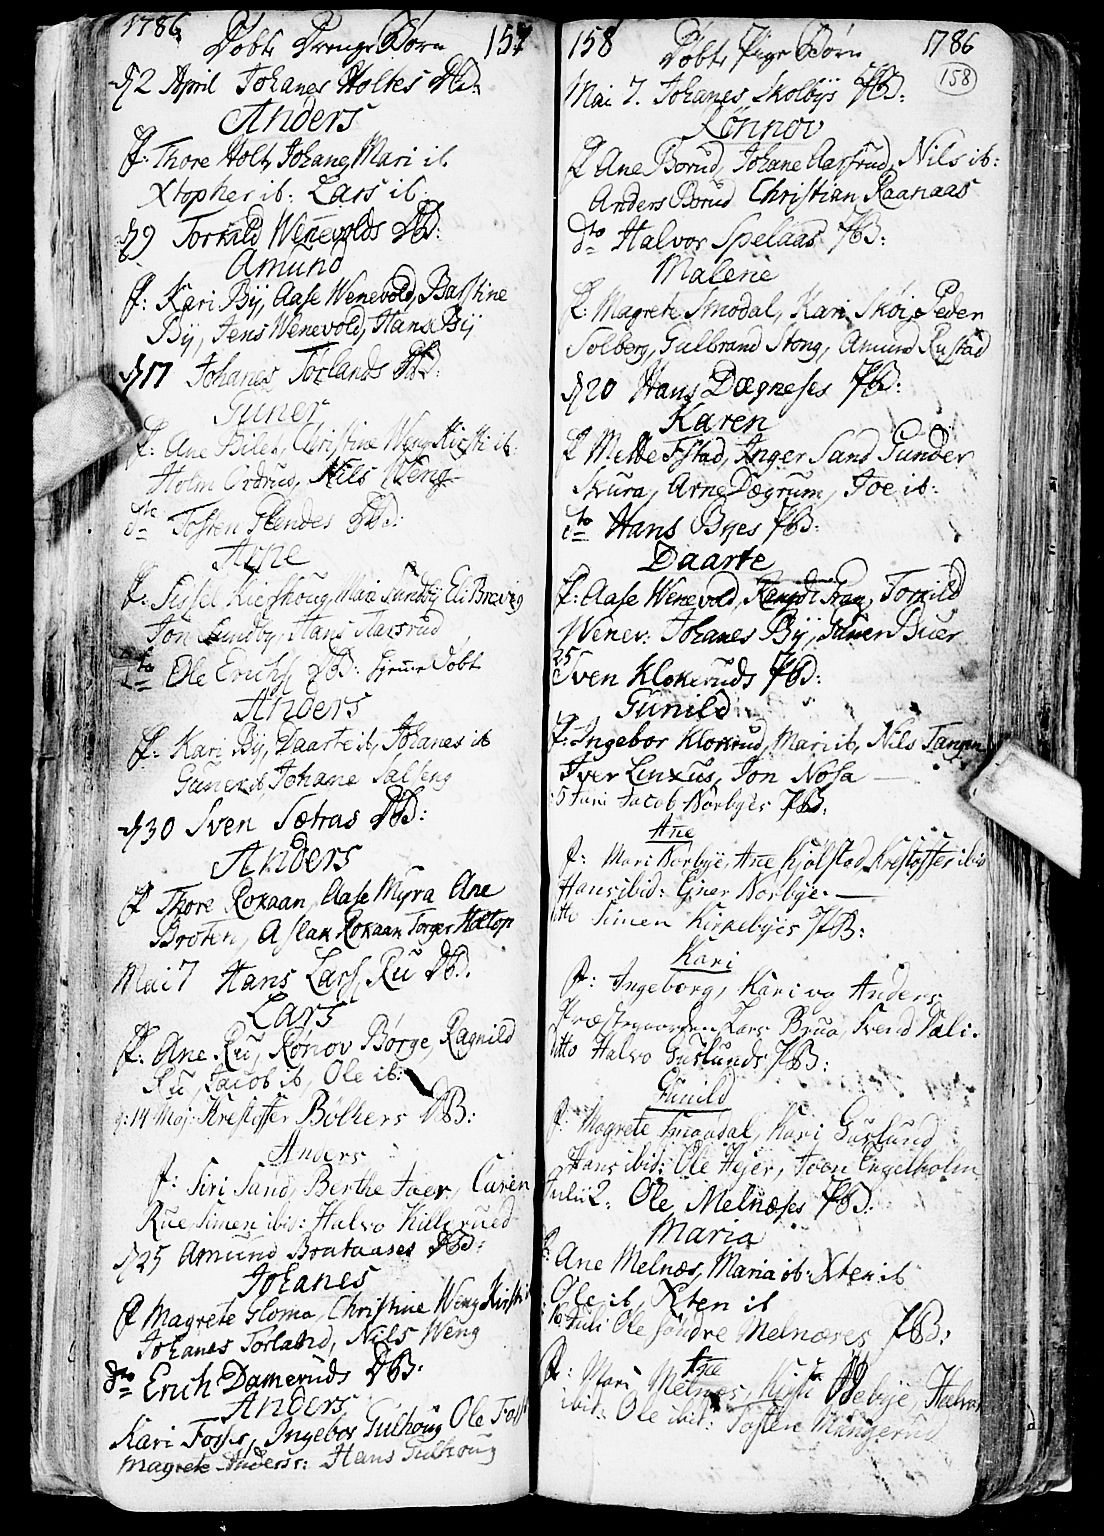 1786
Døbte Drenge Børn 157
d 2 April Johanes Holtes DB:
Anders
f: Thore Holt, Johane, Mari ib
Xtopher ib: Lars ib.
d 9 Torkild Wenevolds DB:
Amund
f: Kari Bÿ, Aase Wenevold, Bastine
Bÿ, Jens Wenevold, Hans Bÿ
d 17 Johanes Torlands DB:
Guner
f: Ane Christine Weng, Kirsti ib:
Holm Nils Weng
dto Tosten DB:
Arne
f: Sissel Mari Sundbÿ Eli
Jon Sundbÿ, Hans Aassrud
dto Ole Erichs DB: Døbt
Anders
f: Kari Bÿ, Daarte ib, Johanes ib
Guner ib, Johane
d 30 Sven Sætras DB:
Anders
f Thore Rokaan, Aase Myra Ane
Broten, Aslak Rokaan Torger
Mai 7 Hans Lars, Ru DB.
Lars
f: Ane Ru, Rønov Børge, Ragnild
Ru, Jacob ib, Ole ib:
14 Maj: Krestoffer Bølkers DB:
Anders
f: Siri Sand, Berthe Caren
Rue, Simen ibid: Halvo
d 25 Amund Brataases DB:
Johanes
f Magrete Gloma, Christine Weng Kirsti
Johanes Torland, Nils Weng
dto Erich Dameruds DB:
Anders
Kari Foss, Ingebor Gulhoug Ole Foss
Magrete Anders: Hans Gulhoug
158 Døbte Pige Børn 1786
158
Mai 7. Johanes Skolbÿs PB:
Rønnov
f Ane Borud, Johane Aassrud, Nils ib:
Anders Borud Christian Raanaas
dto Halvor Spelaas PB:
Malene
f: Magrete Smodal, Kari Skøi, Peder
Solberg, Gulbrand Stong, Amund Rustad
d 20 Hans Dægneses PB:
Karen
f Mette Inger Sand Gunder
Skura, Arne Dægrum, Joe ib:
dto Hans Byes PB:
Daarte
f: Aase Wenevold, Torkild
Wenev: Johanes Bÿ,
25 Sven Klokeruds PB:
Gunild
f: Ingebor Klokrud, Mari ib, Nils Tangen
Iver Jon Nosa
5 Juni Jacob Norbyes PB:
Ane
f: Mari Norbye, Ane Kjølstad, Krestoffer ibid
Hans ibid: Giner Norbye.
ditto Simen Kirkebyes PB:
Kari
f: Ingeborg, Kari og Anders
Præstegaarden, Lars Brua, Svend Dali.
ditto Halvo Guslunds PB:
Gunild
f: Magrete Smaadal, Kari Guslund
Hans ibid: Ole Hejer, Joon Engelholm
Julii 2. Ole Melnæses PB.
Maria
f: Ane Melnæs, Maria ib: Xten ib
Ole ib, Xten ib
16 Juli Ole søndre Melnæses PB:
Ane
f: Mari Melnæs, Kirsti Halvor
ibid: Ole ibid: Tosten Mangerud